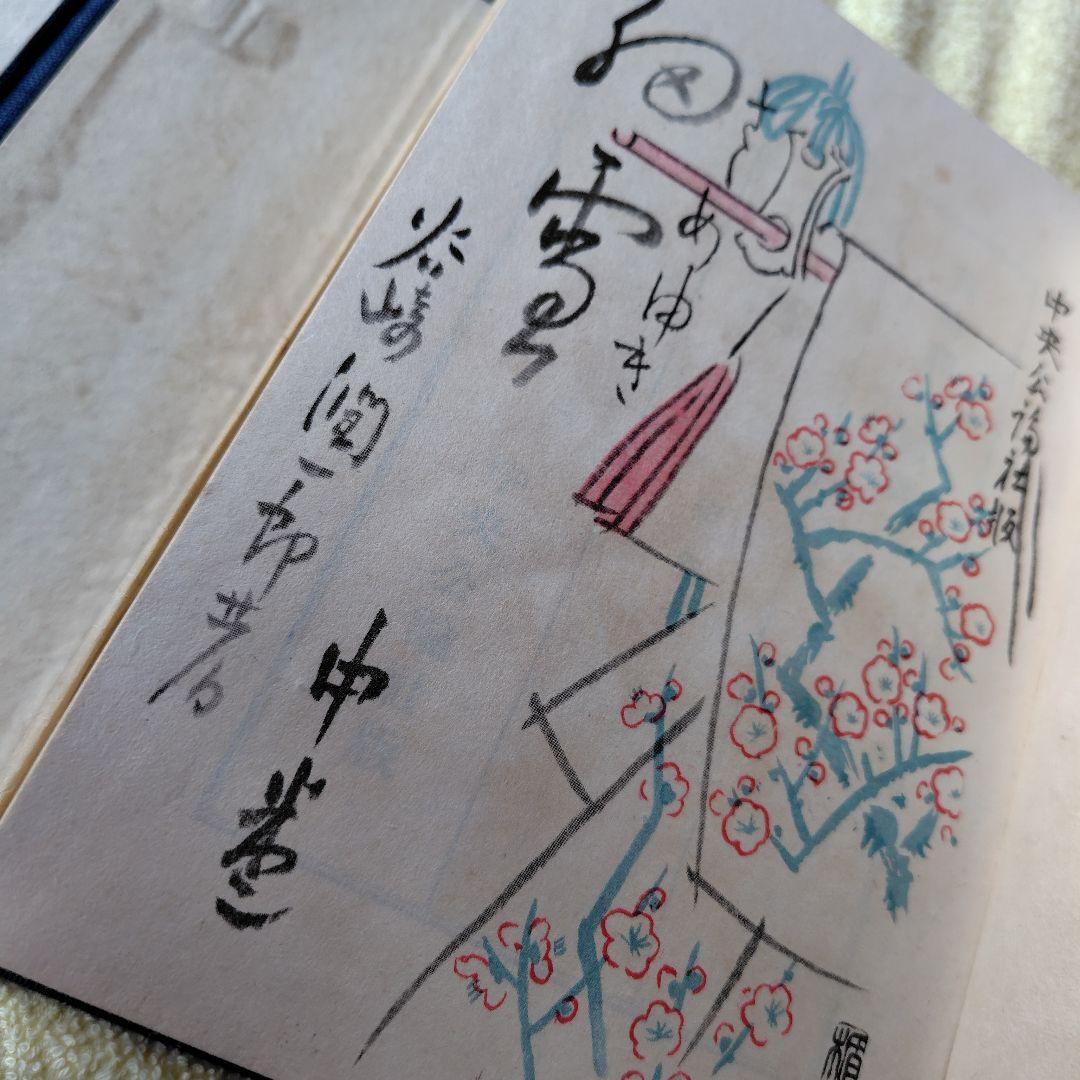 中央公論社版
さゝめゆき
細雪
谷崎潤一郎著
中巻